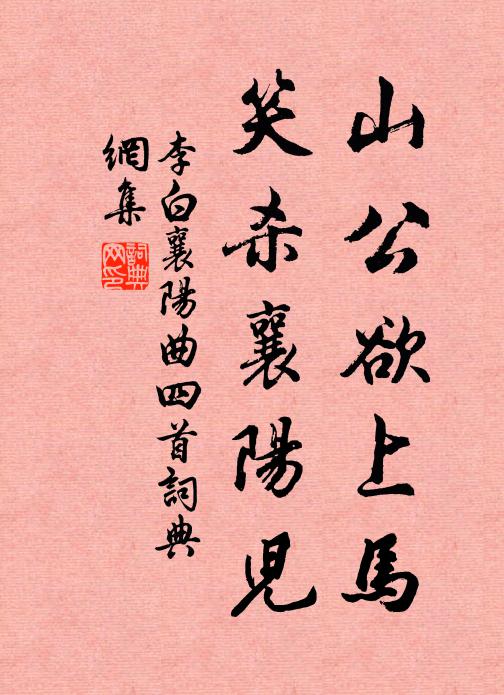 山公欲上馬
笑杀襄陽児
李白襄陽曲四首詞典
網集
詞典
网印